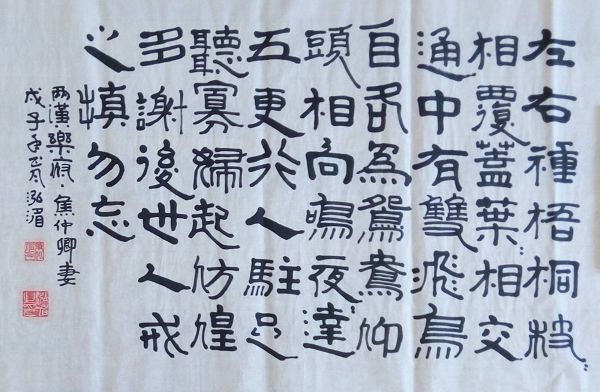 左右種梧桐枝〻
相覆蓋葉〻相交
通中有雙飛鳥
自名為鴛鴦仰
頭相向鳴夜達
五更行人駐足
聽寡婦起仿偟
多謝後世人戒
之慎勿忘
兩漢樂府·焦仲卿妻
戊子年 泓湄